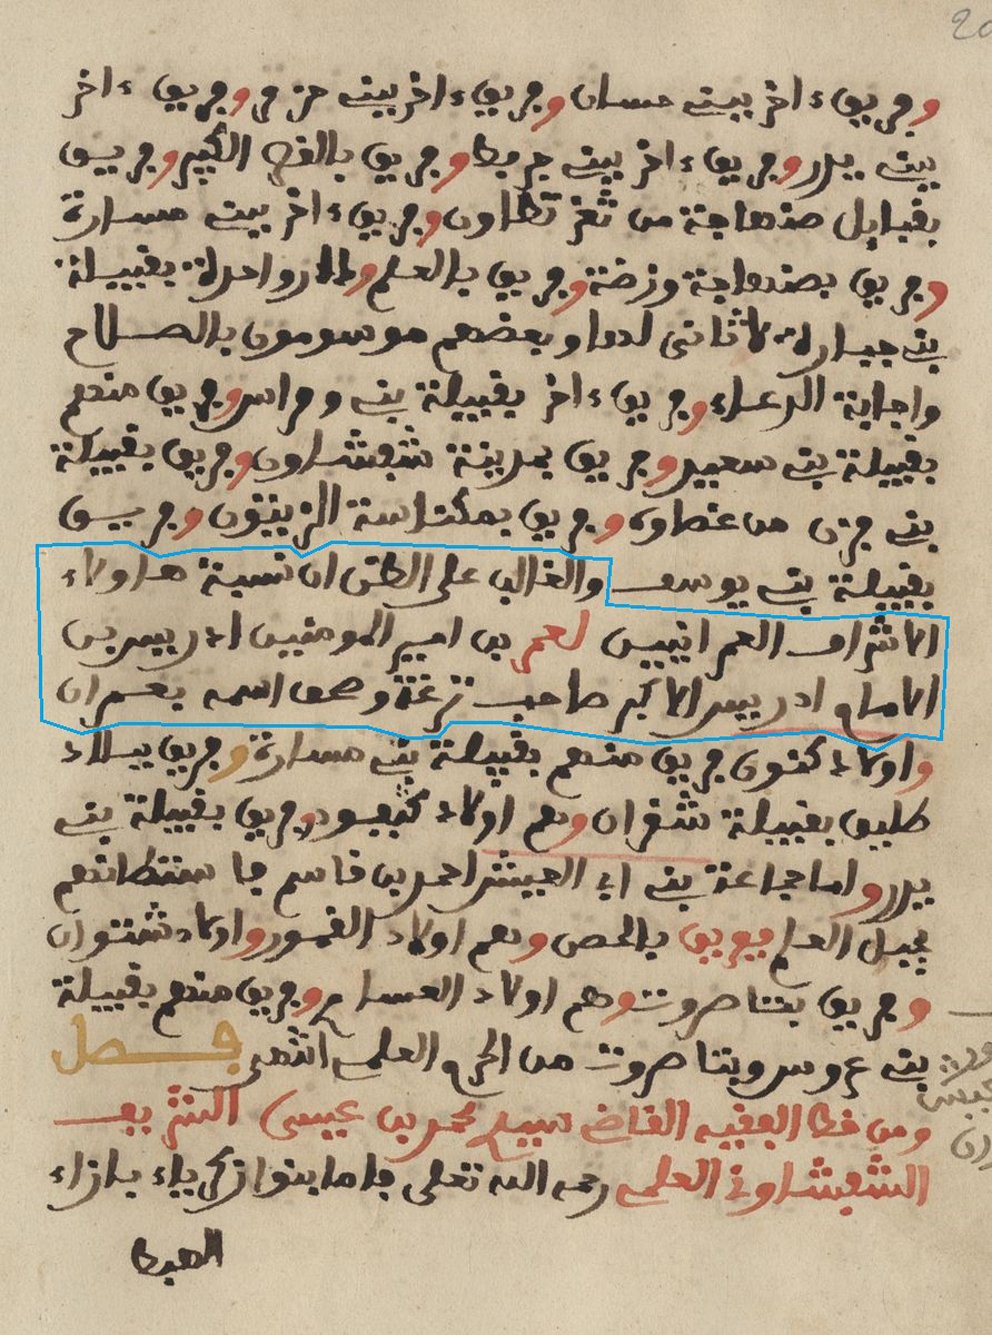 وفريق ءاخر ببني حسان وفريق ءاخر ببني حزمر وفريق ءاخر
ببني يدر وفريق ءاخر ببني جرفط وفريق بالفج الكبير وفريق
بقبايل صنهاجة من ثغر تطاون وفريق ءاخر ببني مسارة
وفريق بصنهاجة وزغة وفريق بالعلم والدار واحدة بقبيلة
بني جبارة لا ثاني لها وبعضهم موسومون بالصلاح
واجابة الدعاء وفريق ءاخر بقبيلة بني ومراس وفريق منهم
بقبيلة بني سعيد وفريق بمدينة شفشاون وفريق بقبيلة
بني جزى من غطاوى وفريق بمكناسة الزيتون وفريق
بقبيلة بني يوسف والغالب على الظن ان نسبة هاولاء
الاشراف العمرانيين لعمر بن امير المومنين ادريس بن
الامام ادريس الاكبر صاحب ترغة وصحف اسمه بعمران
واولاد كنون فريق منهم بقبيلة بني مسارة وفريق ببلاد
طليق بقبيلة شقران وهم اولاد كبعبود وفريق بقبيلة بني
يدر واما جماعة بني ابي العيش احمد بن قاسم فاستيطانهم
بجبل العلم فريق بالحصن وهم اولاد الفمور واولاد شنتوان
وفريق بتاصروت وهم اولاد العسام وفريق منهم بقبيلة
بني عروس وبتاصروت من الحرم العلمي انتهى فصل
ومن خط الفقيه القاضي سيدي محمد بن عيسى الشريف
الشفشاوني العلمي رحمه الله تعلى فاما بنوا زكرياء بازاء
الهبط